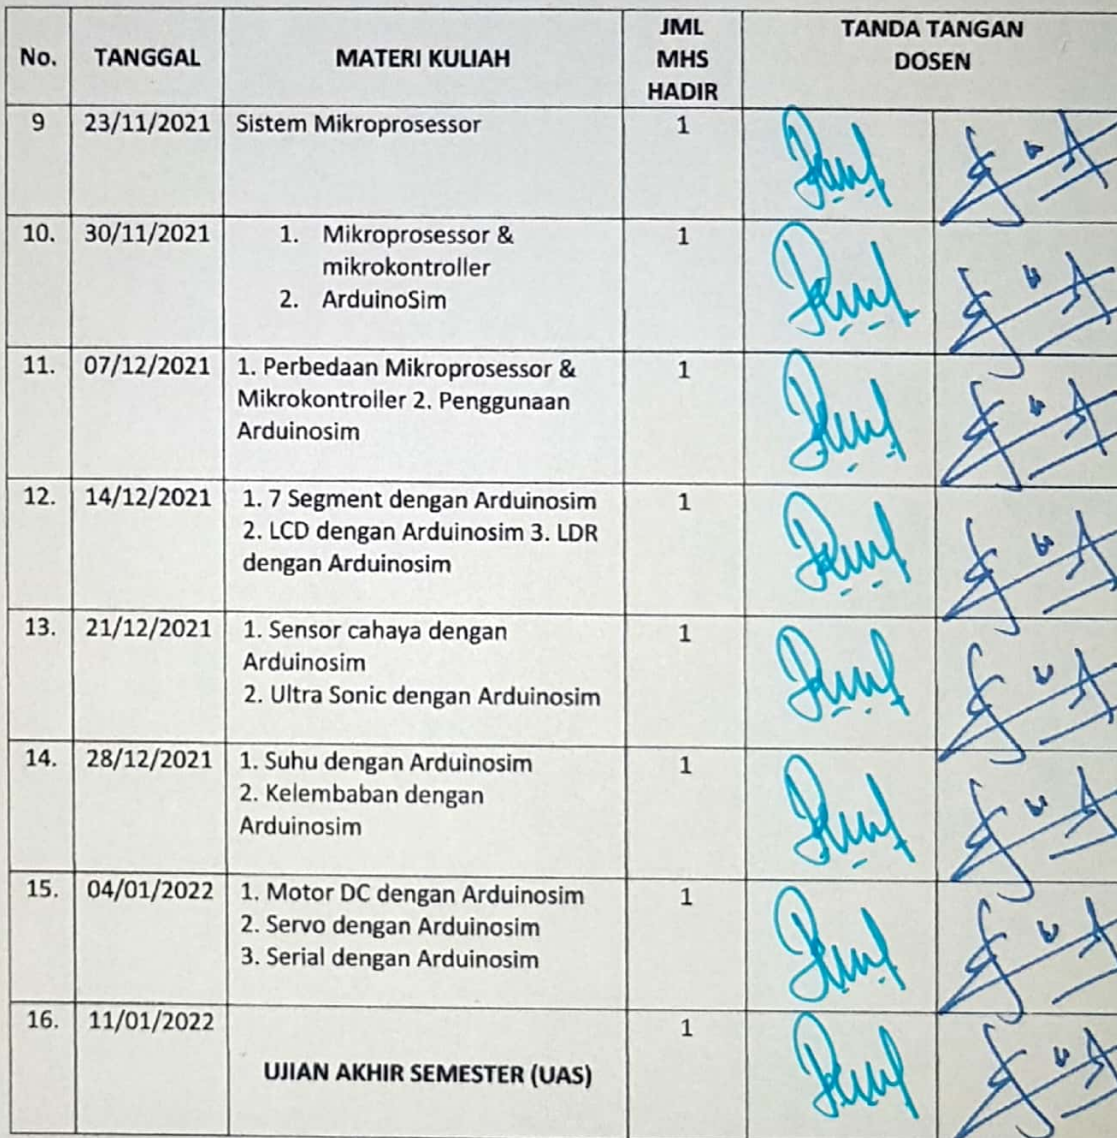 No. TANGGAL MATERI KULIAH JML MHS HADIR TANDA TANGAN DOSEN
9 23/11/2021 Sistem Mikroprosessor 1
10. 30/11/2021 1. Mikroprosessor & 1
mikrokontroller
2. ArduinoSim
11. 07/12/2021 1. Perbedaan Mikroprosessor & 1
Mikrokontroller 2. Penggunaan
Arduinosim
12. 14/12/2021 1. 7 Segment dengan Arduinosim 1
2. LCD dengan Arduinosim 3. LDR
dengan Arduinosim
13. 21/12/2021 1. Sensor cahaya dengan 1
Arduinosim
2. Ultra Sonic dengan Arduinosim
14. 28/12/2021 1. Suhu dengan Arduinosim 1
2. Kelembaban dengan
Arduinosim
15. 04/01/2022 1. Motor DC dengan Arduinosim 1
2. Servo dengan Arduinosim
3. Serial dengan Arduinosim
16. 11/01/2022 1
UJIAN AKHIR SEMESTER (UAS)